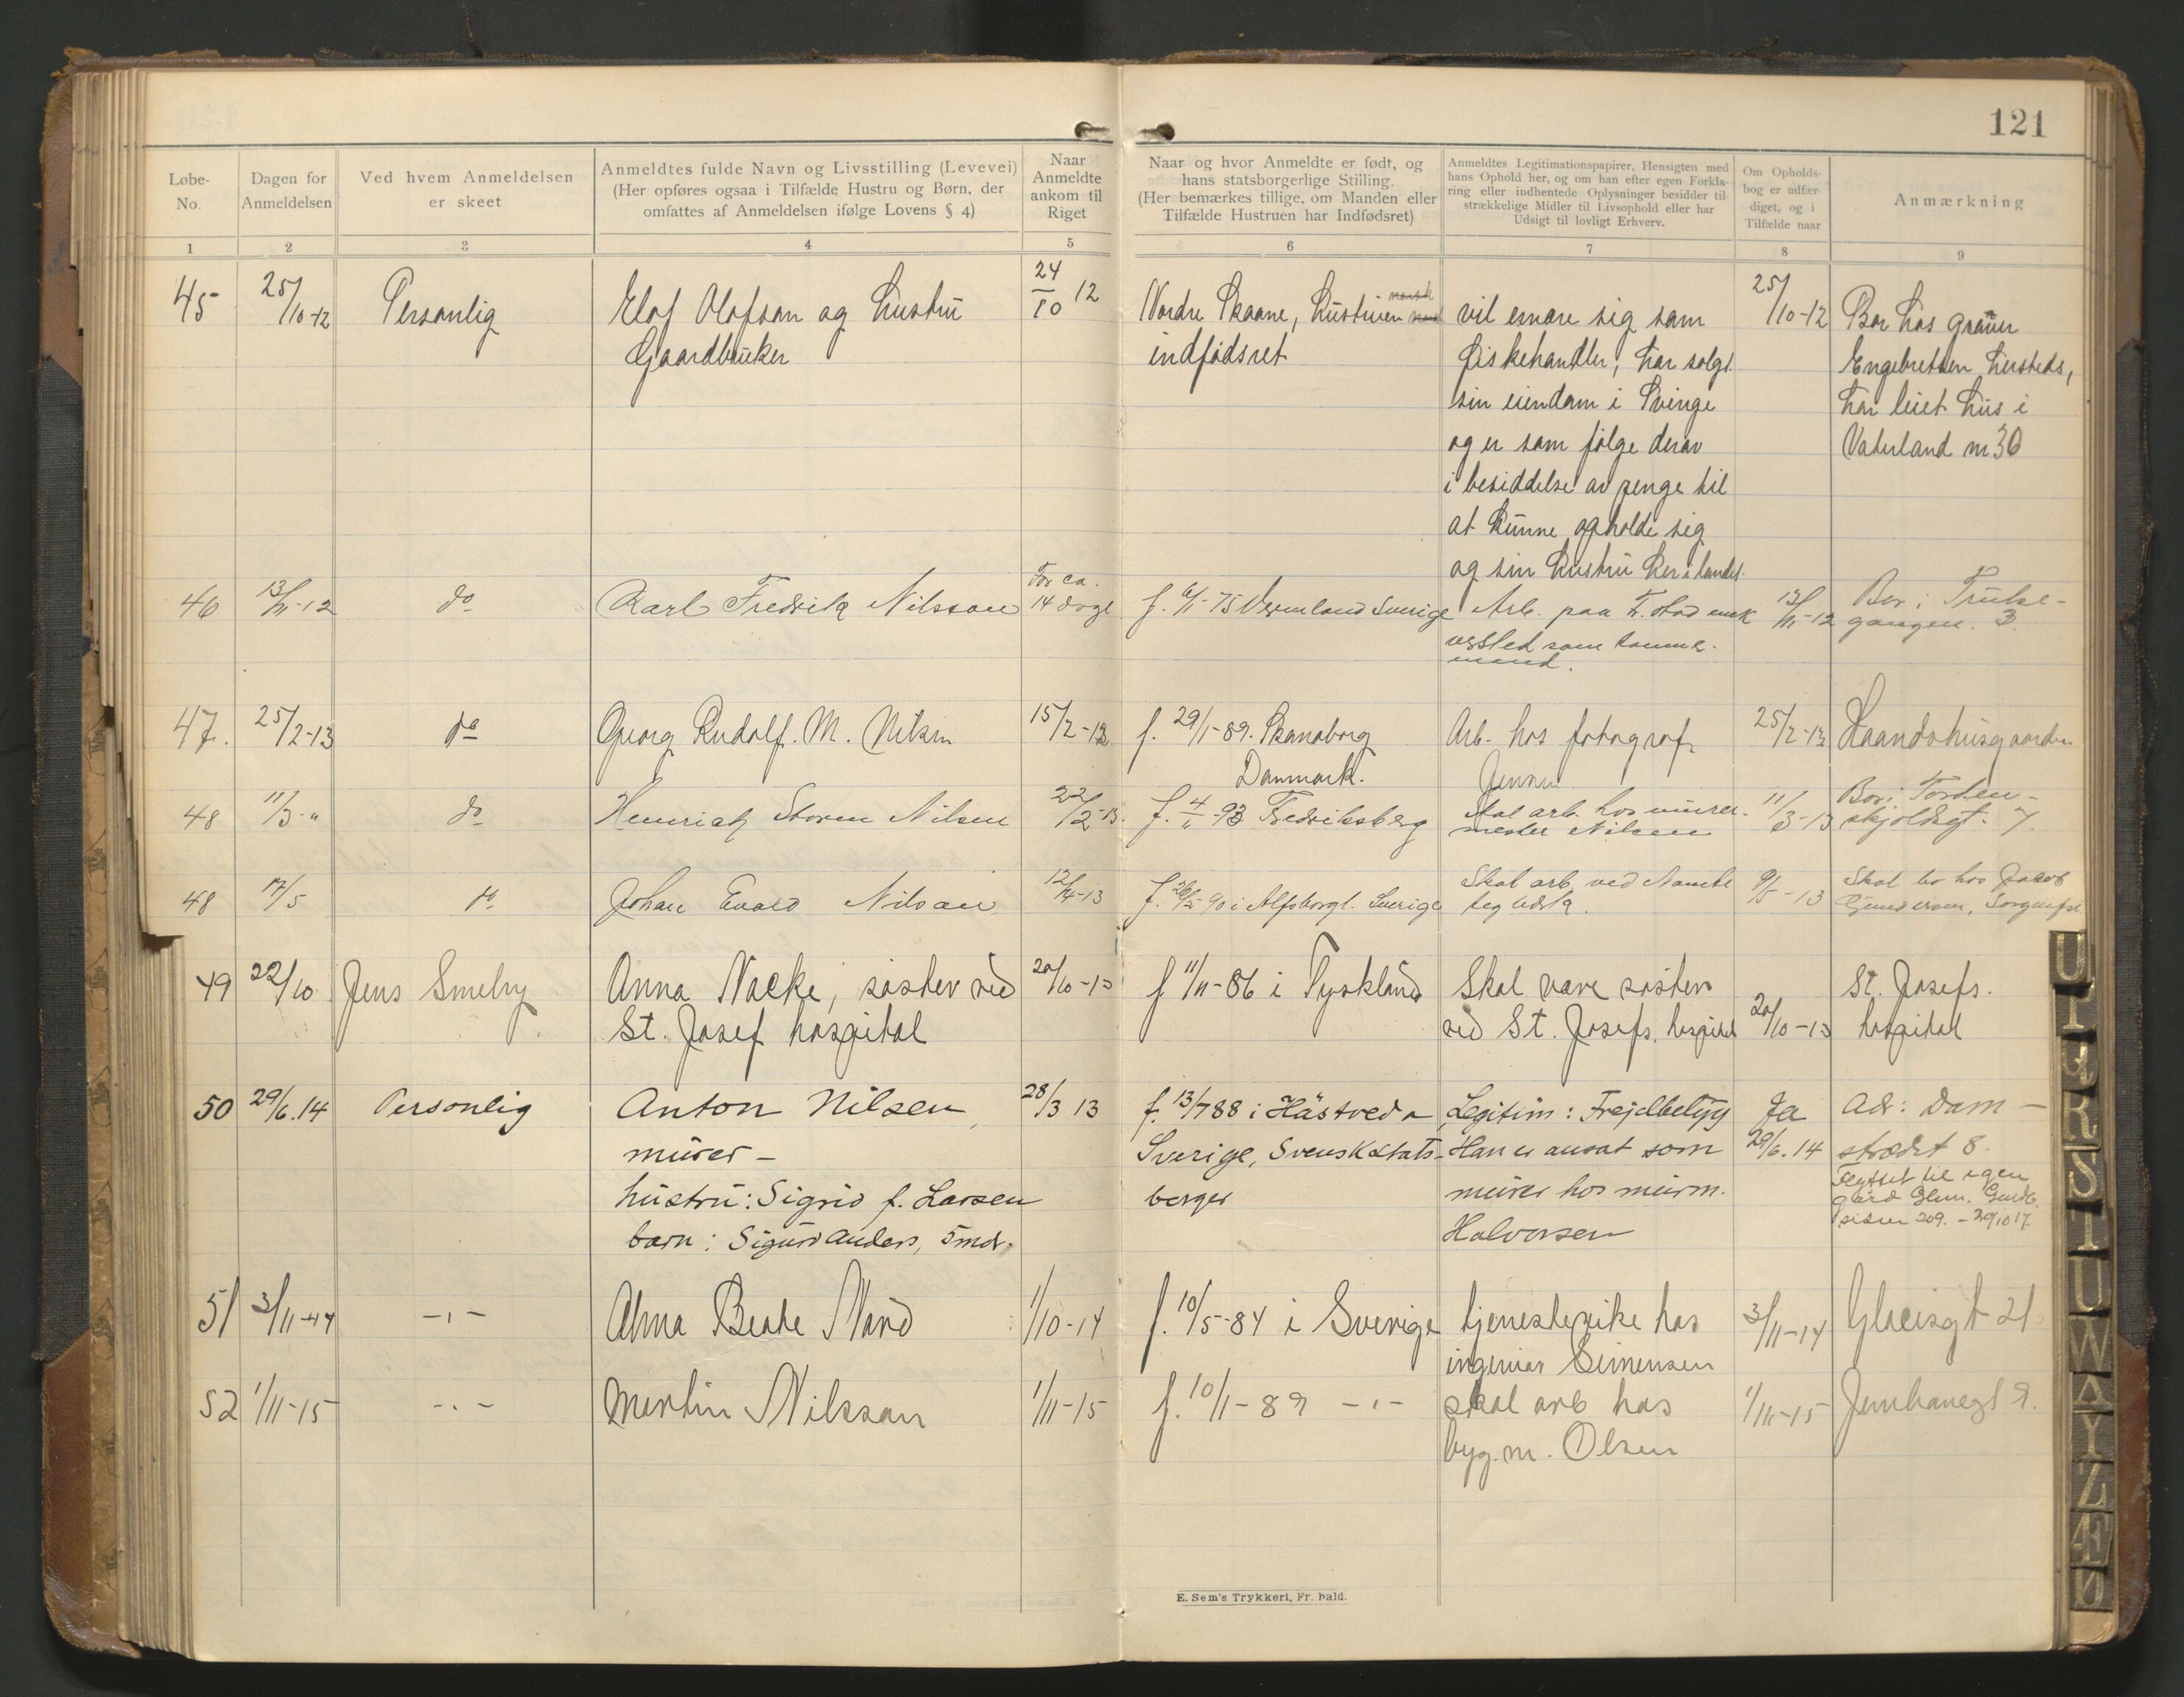 121
Løbe-
No.
Dagen for
Anmeldelsen
Ved hvem Anmeldelsen
er skeet
Anmeldtes fulde Navn og Livsstilling (Levevei)
(Her opføres ogsaa i Tilfælde Hustru og Børn, der
omfattes af Anmeldelsen ifølge Lovens § 4)
Naar
Anmeldte
ankom til
Riget
Naar og hvor Anmeldte er født, og
hans statsborgerlige Stilling.
(Her bemærkes tillige, om Manden eller
Tilfælde Hustruen har Indfødsret)
Anmeldtes Legitimationspapirer, Hensigten med
hans Ophold her, og om han efter egen Forkla-
ring eller indhentede Oplysninger besidder til-
strækkelige Midler til Livsophold eller har
Udsigt til lovligt Erhverv.
Om Opholds-
bog er udfær-
diget, og i
Tilfælde naar
Anmærkning
1 2 3 4 5 6 7 8 9
45
25/10-12
Personlig
Elof Olofson og hustru
Gaardbruker
24/10 12
Nordre Skaane, hustruen norsk
indfødsret
vil ernære sig som
fiskehandler, har solgt
sin eiendom i Sverige
og er som følge derav
i besiddelse av penge til
at kunne opholde sig
og sin hustru her i landet.
25/10-12
Bor hos
Engebretsen hersteds,
har leiet hus i
Vaterland nr 30
46
13/11-12
do
Karl Fredrik Nilsson
For ca.
14 dage
f. 6/1-75 Vermland Sverige
Arb. paa Fr.stad mek
versted som
mand.
13/11-12
Bor i Trulse-
gangen. 3.
47.
25/2-13
do
Georg Rudolf. M. Nilsen
15/2-13.
f. 29/1-89. Skanaborg
Danmark.
Arb. hos fotograf
Jensen
25/2-13
Haandv.husgaarden
48
11/3 "
do
Henrich Storm Nilsen
22/2-13.
f. 4/11-93 Fredriksberg
Skal arb. hos murer-
mester Nilsen
11/3-13
Bor i Torden-
skjoldsgt. 7.
48
17/5
do
Johan Evald Nilsson
12/4-13
f. 26/5 90 i Alfsborgl. Sverige
Skal arb. ved
teglverk.
9/5-13
Skal bo hos Jacob
Gundersen, Sorgenfri
49
22/10
Jens Smeby
Anna Nacke, søster ved
St. Josef hospital
20/10-13
f 11/11-86 i Tyskland
Skal være søster
ved St. Josefs. hospital
20/10-13
St. Josefs.
hospital
50
29/6.14
Personlig
Anton Nilsen,
murer-
hustru: Sigrid f. Larsen
barn: Sigurd Anders, 5 mdr.
28/3 13
f. 13/7 88 i Hästveda
Sverige, Svensk stats-
borger
Legitim: Frejdbetyg
Han er ansat som
murer hos murm.
Halvorsen
Ja
29/6.14
Adr: Dam-
strædet 8.
Flyttet til egen
gård Glem.
209. - 29/10 17
51
3/11-14
-"-
Alma Beate Nord
1/10-14
f. 10/5-84 i Sverige
tjenestepike hos
ingeniør Simensen
3/11-14
Glacisgt 21
52
1/11-15
-"-
Martin Nilsson
1/11-15
f. 10/1-89 -"-
skal arb hos
byg.m. Olsen
1/11-15
Jernbanegt 9.
E. Sem's Trykkeri, Fr. hald.
U
R
S
T
U
W
X
Y
Z
Æ
Ø